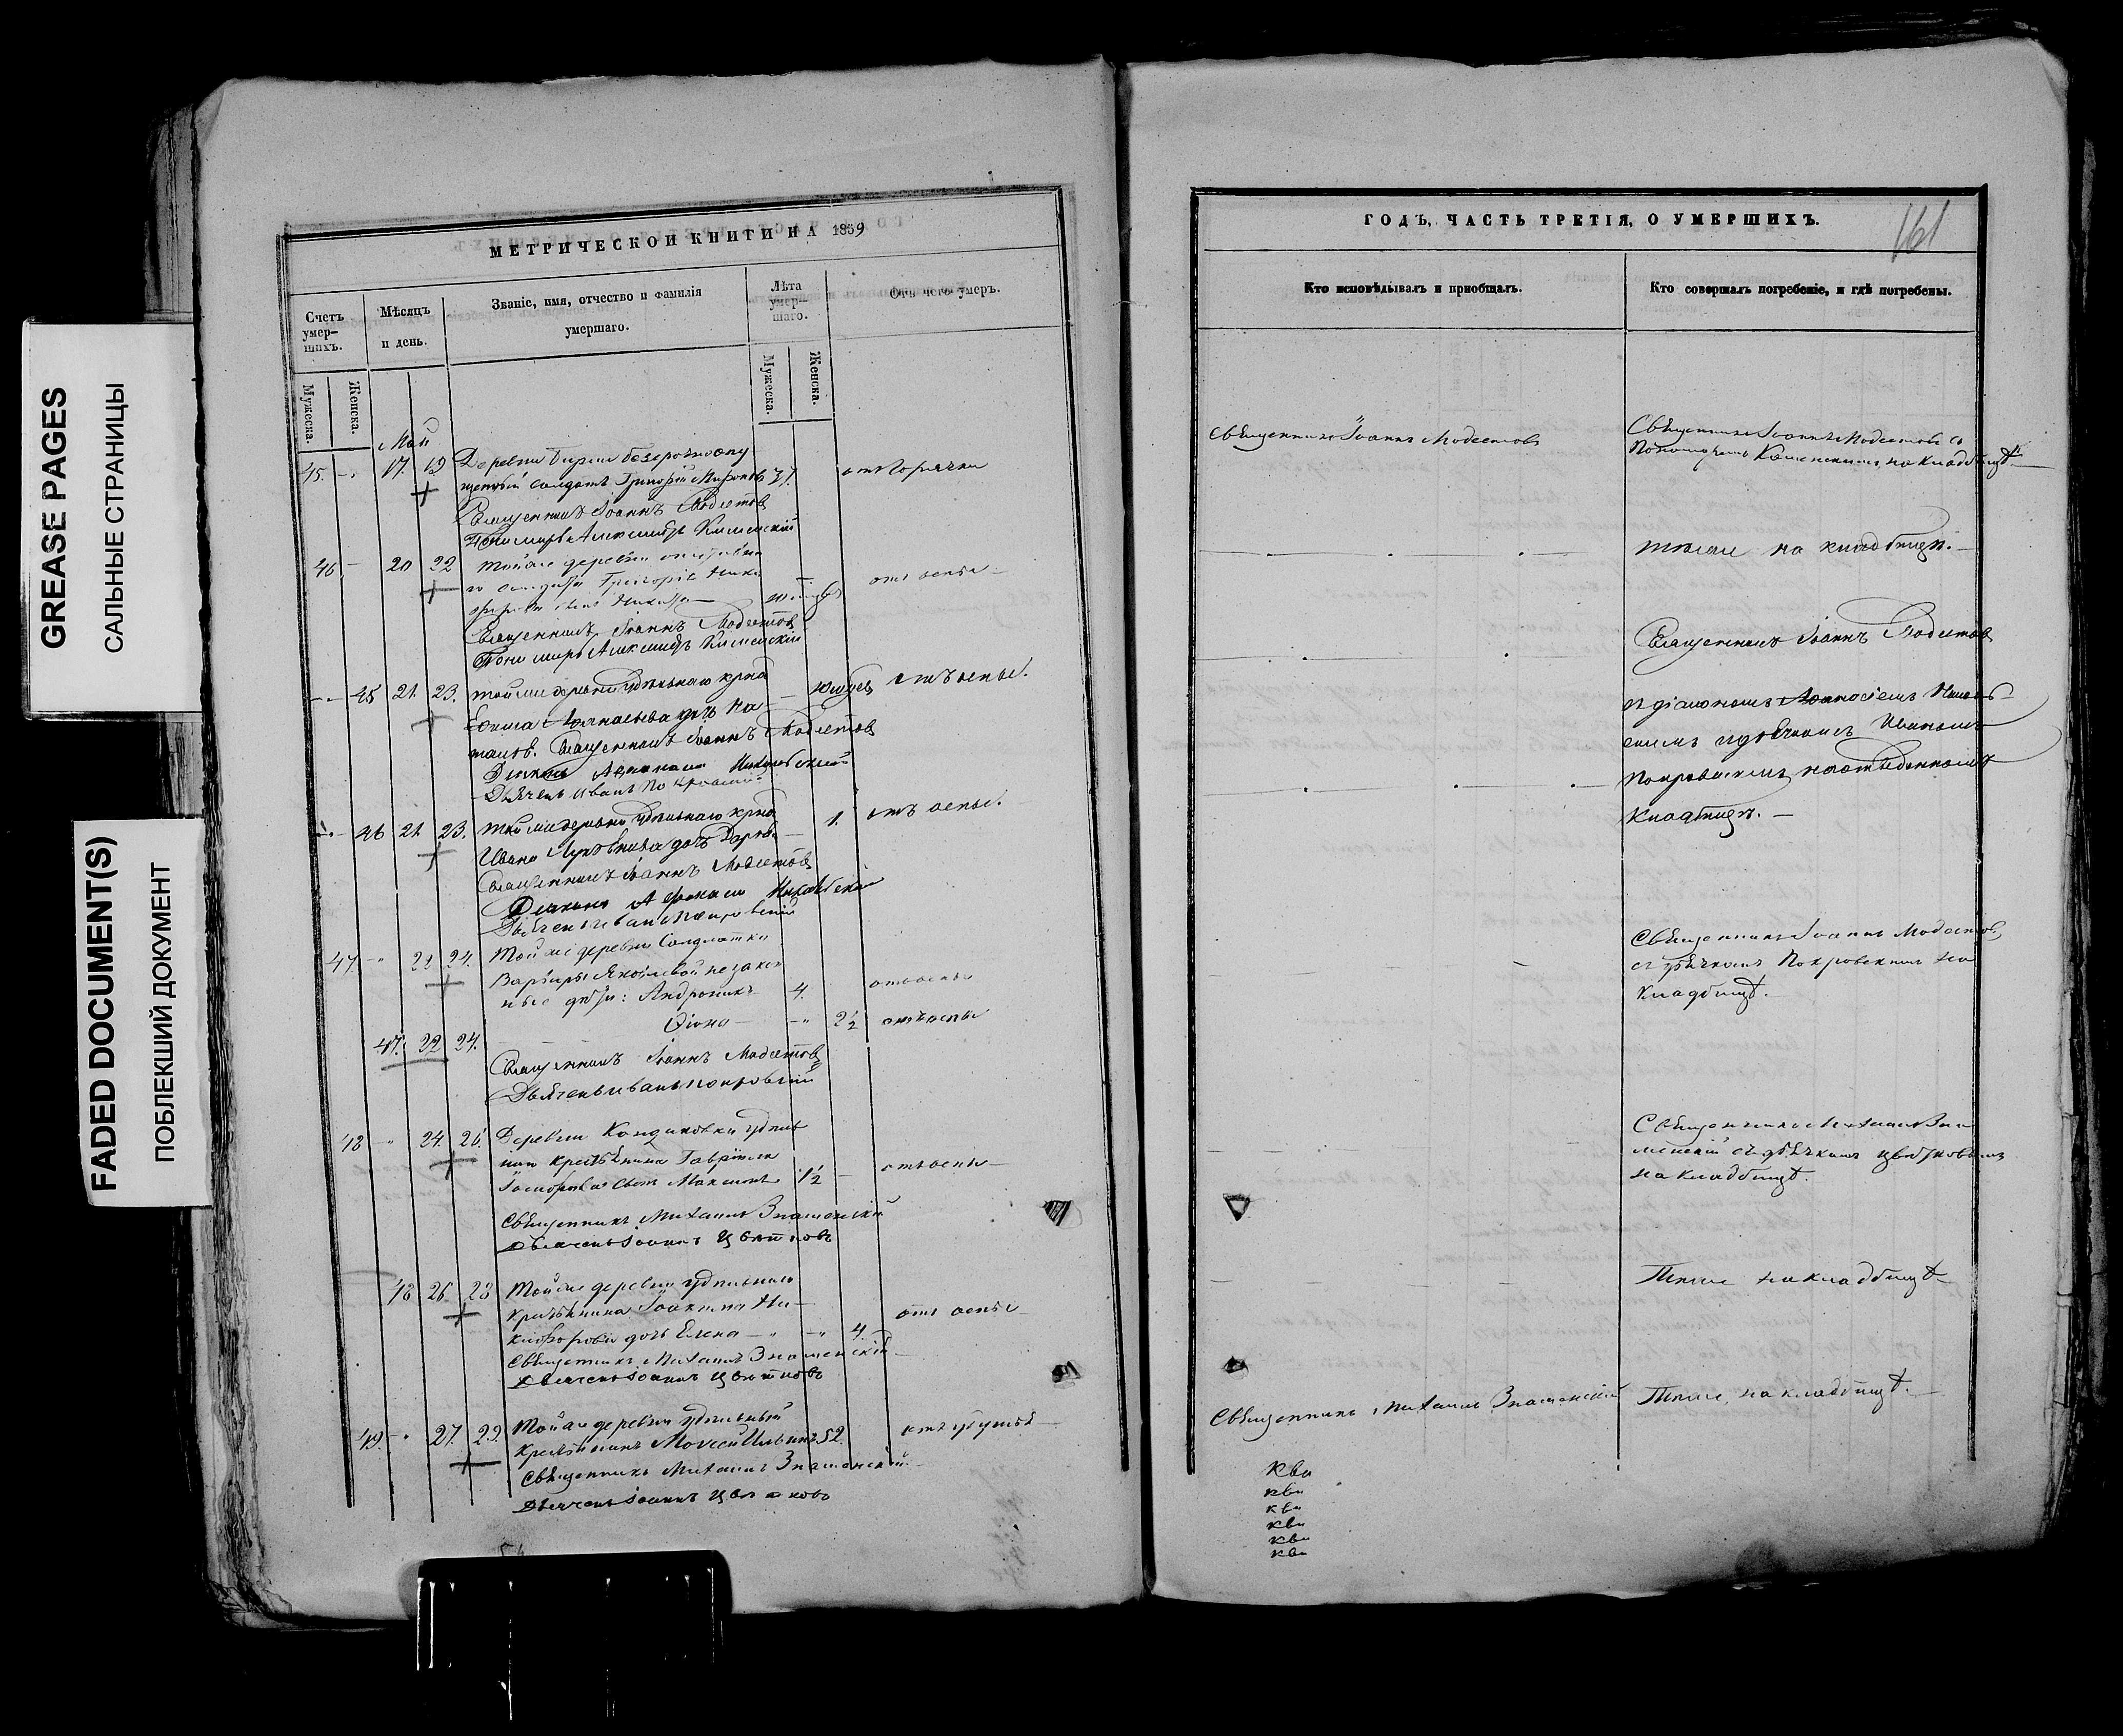 GREASE PAGES
САЛЬНЫЕ СТРАНИЦЫ
FADED DOCUMENT(S)
ПОБЛЕКШИЙ ДОКУМЕНТ
МЕТРИЧЕСКОЙ КНИГИ НА 1859
Счетъ умер-шихъ.
Мѣсяцъ и день.
Званіе, имя, отчество и фамилія умершаго.
Лѣта умер-шаго.
Отъ чего умеръ.
Мужеска.
Женска.
Мужеска.
Женска.
Май
45. 17. 19 Деревни
солдатъ Григорій Мироновъ 71. отъ горячки
Священникъ Іоаннъ Модестовъ
Пономарь Александръ Каменскій
46. 20 22 Той же деревни
солдата Григорія
сынъ Никита отъ оспы
Священникъ Іоаннъ Модестовъ
Пономарь Александръ Каменскій
45 21. 23. той же деревни удѣльнаго крна
дочь На-
талія. отъ оспы.
Священникъ Іоаннъ Модестовъ
Діаконъ Афанасій Никольскій
Дьячекъ Иванъ Покровскій
46 21. 23. той же деревни удѣльнаго крна
Ивана дочь Дарья 1. отъ оспы.
Священникъ Іоаннъ Модестовъ
Діаконъ Афанасій Никольскій
Дьячекъ Иванъ Покровскій
47. 22 24. Той же деревни Солдатки
Варвары Яковлевой незакон
ные дѣти: Андроникъ 4. отъ оспы
47. 22 24. Ѳіона 2½ отъ оспы
Священникъ Іоаннъ Модестовъ
Дьячекъ Иванъ Покровскій
48 24. 26. Деревни Кондаковки удѣль
наго крестьянина Гавріила
сынъ Максимъ 1½ отъ оспы
Священникъ Михаилъ Знаменскій
Дьячекъ Іоаннъ Цвѣтковъ
48 26. 28 Той же деревни удѣльнаго
крестьянина Іоакима Ни-
кифорова дочь Елена 4. отъ оспы
Священникъ Михаилъ Знаменскій
Дьячекъ Іоаннъ Цвѣтковъ
49. 27. 29. Той же деревни удѣльный
крестьянинъ Моисей Ильинъ 52.
Священникъ Михаилъ Знаменскій
Дьячекъ Іоаннъ Цвѣтковъ
ГОДЪ, ЧАСТЬ ТРЕТІЯ, О УМЕРШИХЪ.
161
Кто исповѣдывалъ и пріобщалъ.
Кто совершалъ погребеніе, и гдѣ погребены.
Священникъ Іоаннъ Модестовъ
Священникъ Іоаннъ Модестовъ съ
Пономаремъ Каменскимъ на кладбищѣ
тѣже на кладбищѣ.
Священникъ Іоаннъ Модестовъ
съ діакономъ Афанасіемъ Николь-
скимъ и дьячкомъ Иваномъ
Покровскимъ на отведенномъ
кладбищѣ.
Священникъ Іоаннъ Модестовъ
съ дьячкомъ Покровскимъ на
кладбищѣ.
Священникъ Михаилъ Зна
менскій съ дьячкомъ Цвѣтковымъ
на кладбищѣ.
Тѣже на кладбищѣ
Священникъ Михаилъ Знаменскій
Тѣже, на кладбищѣ.